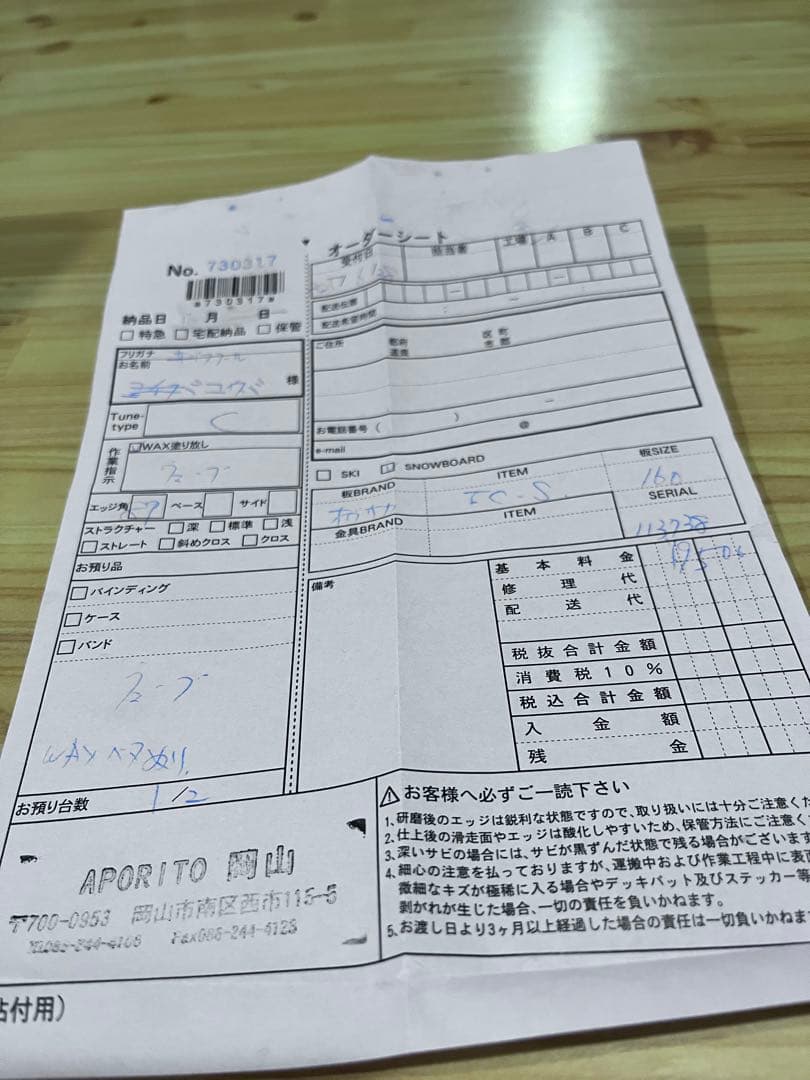 オーダーシート
No. 730317
*730317*
受付日 担当者 工場 A B C
納品日 月 日
配送伝票
配送希望時間
□ 特急 □ 宅配納品 □ 保管
フリガナ
お名前 様
ご住所 都府 道県 区町 市郡
Tune-type C
お電話番号 ( )
e-mail @
作業指示 WAX塗り放し
フューブ
□ SKI □ SNOWBOARD
板BRAND ITEM 板SIZE
TC-S 160
金具BRAND ITEM SERIAL
113738
エッジ角 ベース サイド
ストラクチャー □ 深 □ 標準 □ 浅
□ ストレート □ 斜めクロス □ クロス
お預り品
□ バインディング
□ ケース
□ バンド
WAX
お預り台数 1/2
備考
基本料金
修理代
配送代
税抜合計金額
消費税10%
税込合計金額
入金額
残金
APORITO 岡山
〒700-0953 岡山市南区西市115-5
Fax086-244-4123
お客様へ必ずご一読下さい
1、研磨後のエッジは鋭利な状態ですので、取り扱いには十分ご注意くだ
2、仕上後の滑走面やエッジは酸化しやすいため、保管方法にご注意く
3、深いサビの場合には、サビが黒ずんだ状態で残る場合がございます
4、細心の注意を払っておりますが、運搬中および作業工程中に表面
微細なキズが極稀に入る場合やデッキパット及びステッカー等
剥がれが生じた場合、一切の責任を負いかねます。
5、お渡し日より3ヶ月以上経過した場合の責任は一切負いかねま
貼付用）